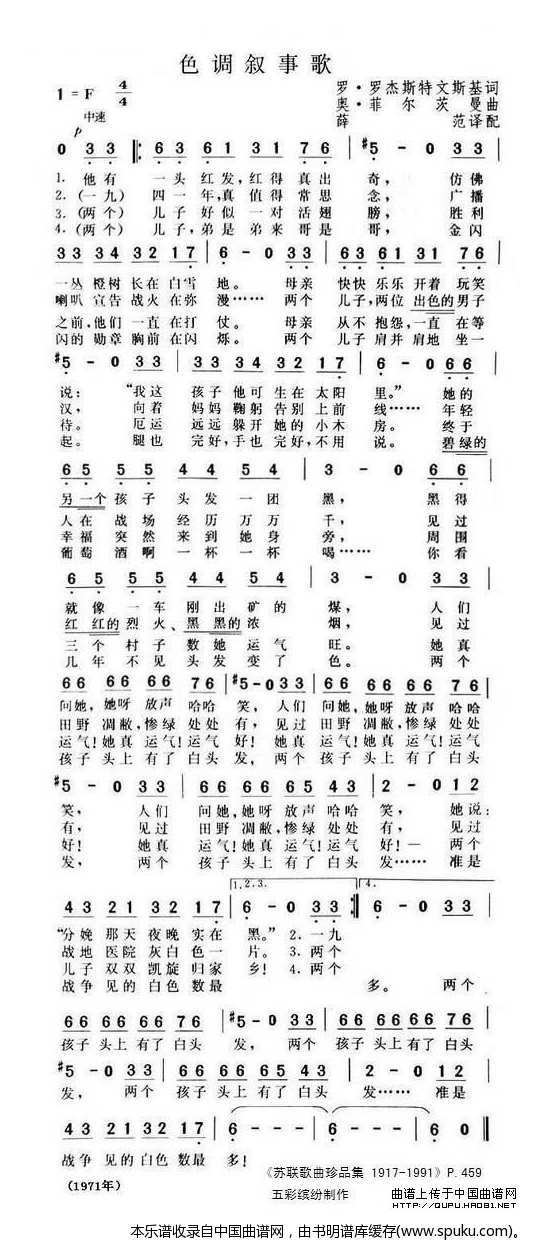 色调叙事歌
1=F 4/4
罗·罗杰斯特文斯基词
奥·菲尔茨曼曲
薛 范译配
中速
p
0 33 |: 63 63 31 76 | #5 - 0 33 |
1. 他有 一头红发,红得真出 奇, 仿佛
2.(一九) 四一年,真值得常思 念, 广播
3.(两个) 儿子好似一对活翅 膀, 胜利
4.(两个) 儿子,弟是弟来哥是 哥, 金闪
33 34 32 17 | 6 - 0 33 | 63 63 31 76 |
一丛橙树长在白雪 地。 母亲 快快乐乐开着玩笑
喇叭宣告战火在弥 漫…… 两个 儿子,两位出色的男子
之前,他们一直在打 仗。 母亲 从不抱怨,一直在等
闪的勋章胸前在闪 烁。 两个 儿子肩并肩地坐一
#5 - 0 33 | 33 34 32 17 | 6 - 0 66 |
说: “我这 孩子他可生在太阳 里。” 她的
汉, 向着 妈妈鞠躬告别上前 线…… 年轻
待。 厄运 远远躲开她的小木 房。 终于
起。 腿也 完好,手也完好,不用 说。 碧绿的
65 55 44 54 | 3 - 0 66 |
另一个孩子头发一团 黑, 黑得
人在战场经历万万 千, 见过
幸福突然来到她身 旁, 周围
葡萄酒啊一杯一杯 喝…… 你看
65 55 44 54 | 3 - 0 33 |
就像一车刚出矿的 煤, 人们
红红的烈火、黑黑的浓 烟, 见过
三个村子数她运气 旺。 她真
几年不见头发变了 色。 两个
66 66 66 76 | #5-0 33 | 66 66 66 76 |
问她,她呀放声哈哈 笑, 人们 问她,她呀放声哈哈
田野凋敝,惨绿处处 有, 见过 田野凋敝,惨绿处处
运气!她真运气!运气 好! 她真 运气!她真运气!运气
孩子头上有了白头 发, 两个 孩子头上有了白头
#5 - 0 33 | 66 66 65 43 | 2 - 0 12 |
笑, 人们 问她,她呀放声哈哈 笑, 她说:
有, 见过 田野凋敝,惨绿处处 有, 见过
好! 她真 运气!她真运气!运气 好!— 两个
发, 两个 孩子头上有了白头 发…… 准是
1.2.3. 4.
43 21 32 17 | 6 - 0 33 :| 6 - 0 33 |
“分娩那天夜晚实在 黑。” 2.一九
战地医院灰白色一 片。 3.两个
儿子双双凯旋归家 乡! 4.两个
战争见的白色数最 多。 两个
66 66 66 76 | #5-0 33 | 66 66 66 76 |
孩子头上有了白头 发, 两个 孩子头上有了白头
#5 - 0 33 | 66 66 65 43 | 2 - 0 12 |
发, 两个 孩子头上有了白头 发…… 准是
43 21 32 17 | 6 - - - | 6 - - - | 6 0 ‖
战争见的白色数最 多!
《苏联歌曲珍品集 1917-1991》P.459
(1971年)
五彩缤纷制作
曲谱上传于中国曲谱网
http://QUPU.HAO81.NET
本乐谱收录自中国曲谱网,由书明谱库缓存(www.spuku.com)。